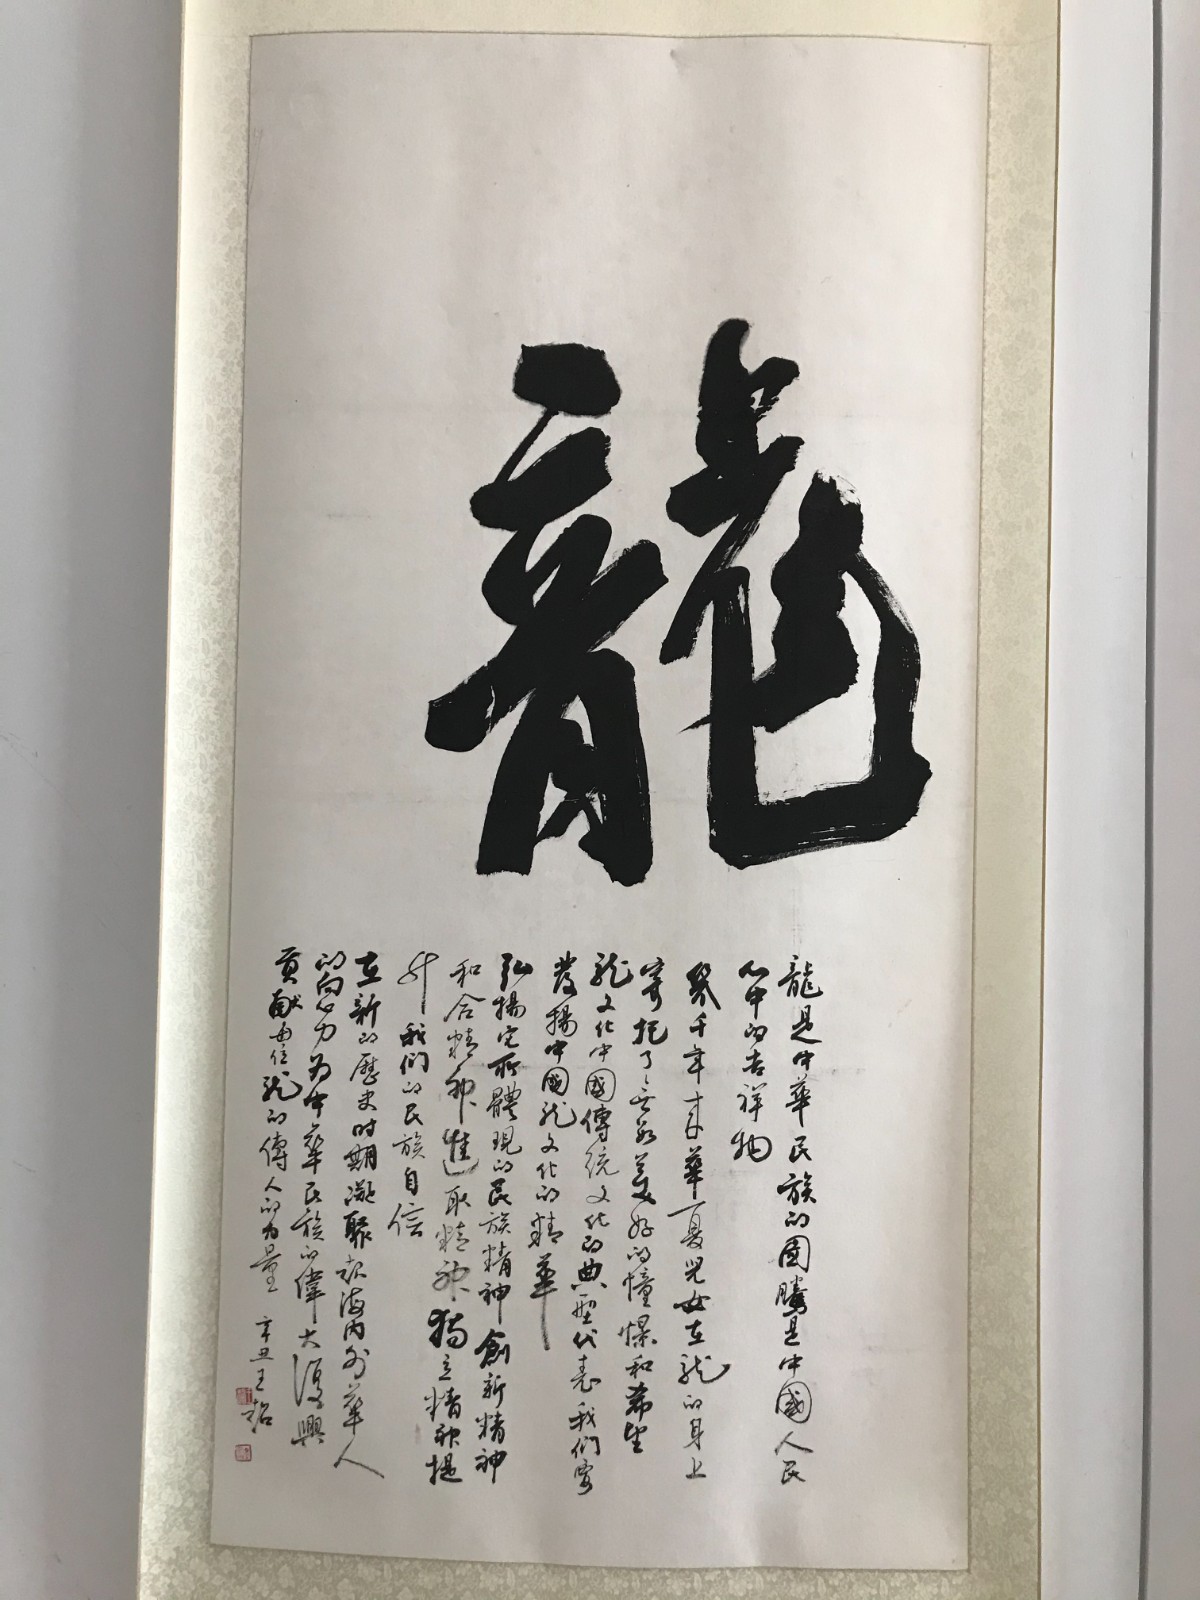 龍
龍是中華民族的圖騰是中國人民
心中的吉祥物
幾千年來華夏兒女在龙的身上
寄托了无数美好的憧憬和希望
龙文化中國傳統文化的典型代表我们要
發揚中國龙文化的精華
弘揚它所體現的民族精神創新精神
和合精神進取精神獨立精神提
升我们的民族自信
在新的歷史时期凝聚起海内外華人
的向心力为中華民族的偉大復興
貢献每位龙的傳人的力量
辛丑王韜